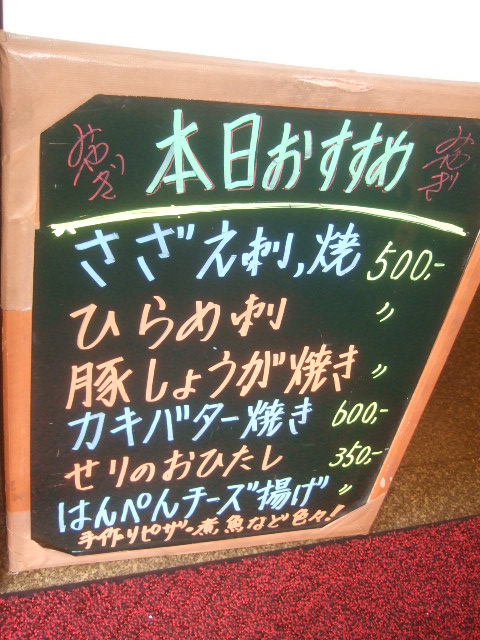 みやぎ 本日おすすめ みやぎ
さざえ刺,焼 500,-
ひらめ刺 〃
豚しょうが焼き 〃
カキバター焼き 600,-
せりのおひたし 350,-
はんぺんチーズ揚げ 〃
手作りピザ・煮魚など色々!